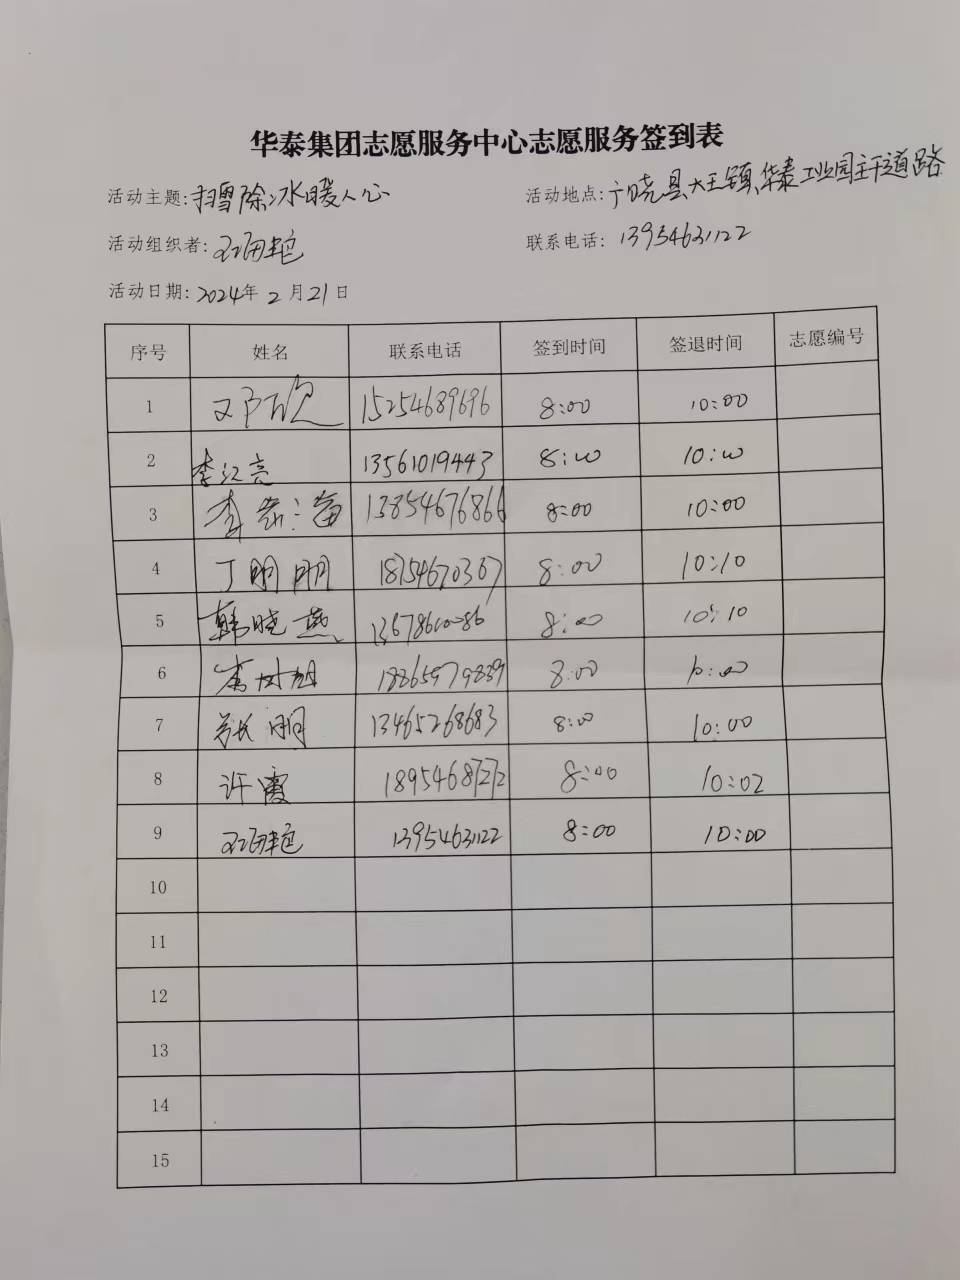 华泰集团志愿服务中心志愿服务签到表
活动主题:扫雪除冰暖人心 活动地点:广饶县大王镇华泰工业园主干道路
活动组织者: 联系电话: 13954631122
活动日期:2024年2月21日
序号 姓名 联系电话 签到时间 签退时间 志愿编号
1 邓欣 15254689696 8:00 10:00
2 李江亮 13561019443 8:00 10:00
3 13854676866 8:00 10:00
4 丁明明 18754670367 8:00 10:10
5 韩晓燕 8:00 10:10
6 18865979839 8:00 10:00
7 张明 13465268683 8:00 10:00
8 许霞 18954687272 8:00 10:02
9 13954631122 8:00 10:00
10
11
12
13
14
15